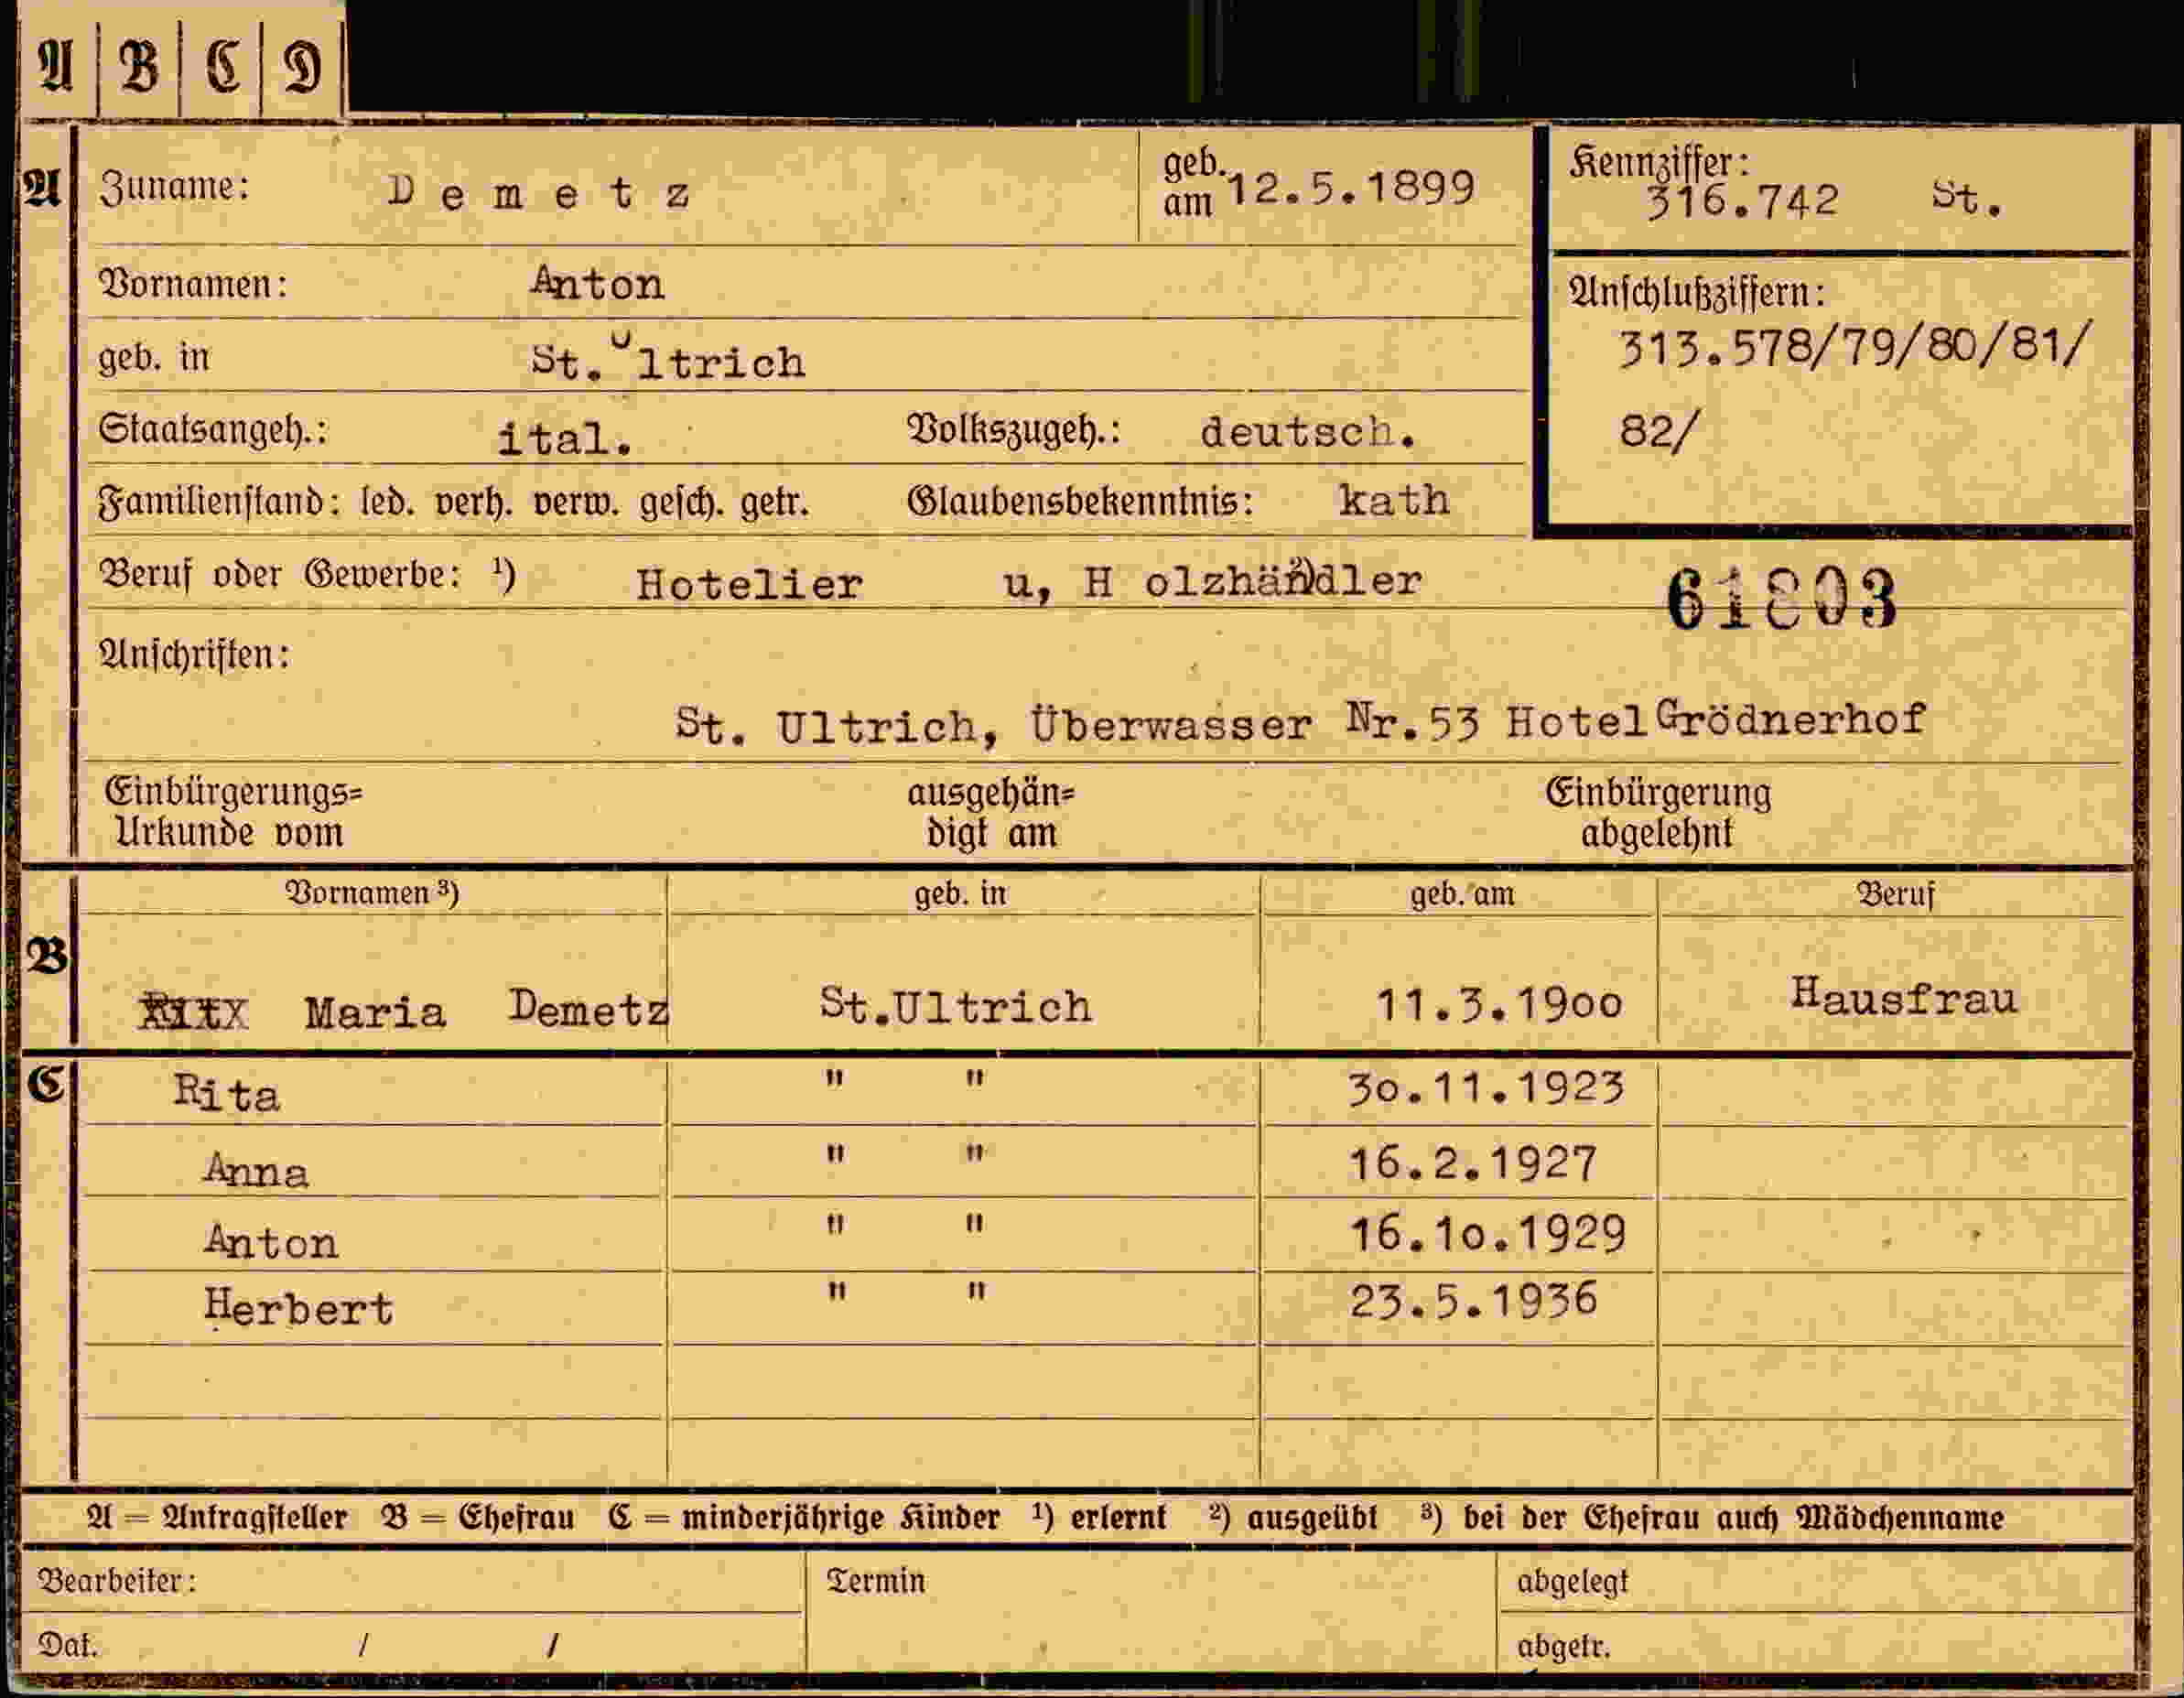 A B C D
A Zuname: Demetz geb. am 12.5.1899 Kennziffer: 316.742 St.
Vornamen: Anton Anschlußziffern:
geb. in St. Ultrich 313.578/79/80/81/
Staatsangeh.: ital. Volkszugeh.: deutsch. 82/
Familienstand: led. verh. verw. gesch. getr. Glaubensbekenntnis: kath
Beruf oder Gewerbe: ¹) Hotelier u, H olzhändler ²) 61803
Anschriften:
St. Ultrich, Überwasser Nr.53 Hotel Grödnerhof
Einbürgerungs= ausgehän= Einbürgerung
Urkunde vom digt am abgelehnt
Vornamen ³) geb. in geb. am Beruf
B Maria Demetz St.Ultrich 11.3.19oo Hausfrau
C Rita " " 3o.11.1923
Anna " " 16.2.1927
Anton " " 16.1o.1929
Herbert " " 23.5.1936
A = Antragsteller B = Ehefrau C = minderjährige Kinder ¹) erlernt ²) ausgeübt ³) bei der Ehefrau auch Mädchenname
Bearbeiter: Termin abgelegt
Dat. / / abgetr.